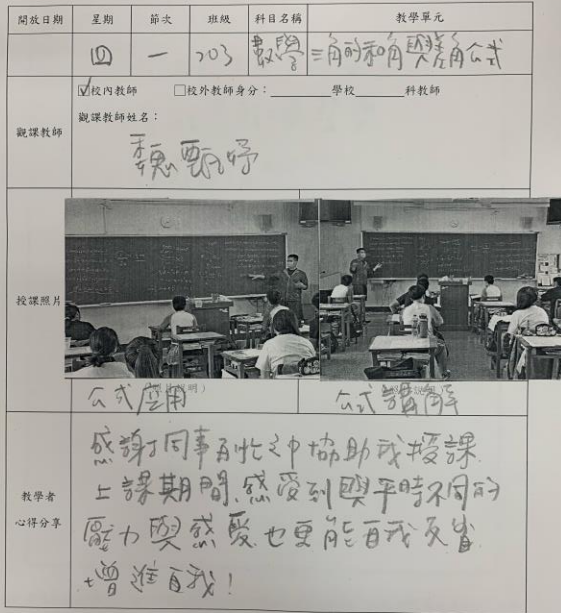 開放日期 星期 節次 班級 科目名稱 教學單元
四 一 203 數學 三角的和角與差角公式
觀課教師
☑校內教師 □校外教師身分：________學校______科教師
觀課教師姓名：
魏甄妤
授課照片
公式應用 公式講解
教學者
心得分享
感謝同事百忙之中協助我授課
上課期間,感受到與平時不同的
壓力與感受,也更能自我反省
增進自我!